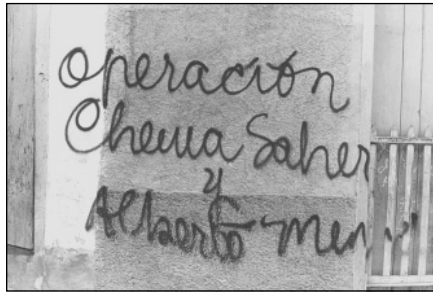 Operación
Chema Saher
y
Alberto